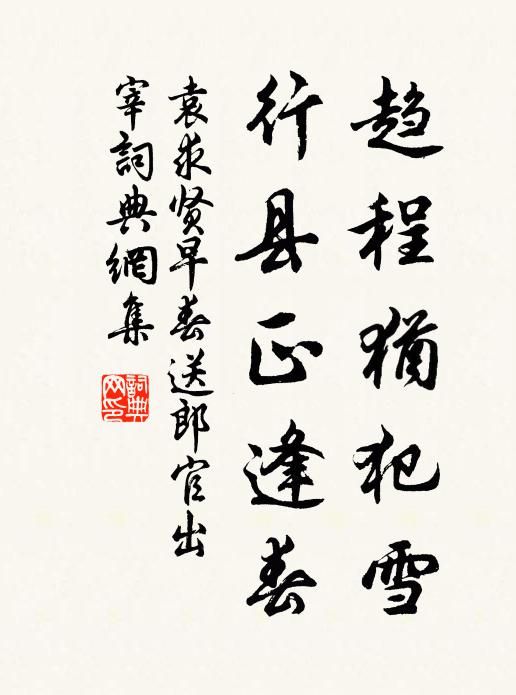 趋程犹犯雪
行县正逢春
袁求贤早春送郎官出
宰詞典網集
詞典网印